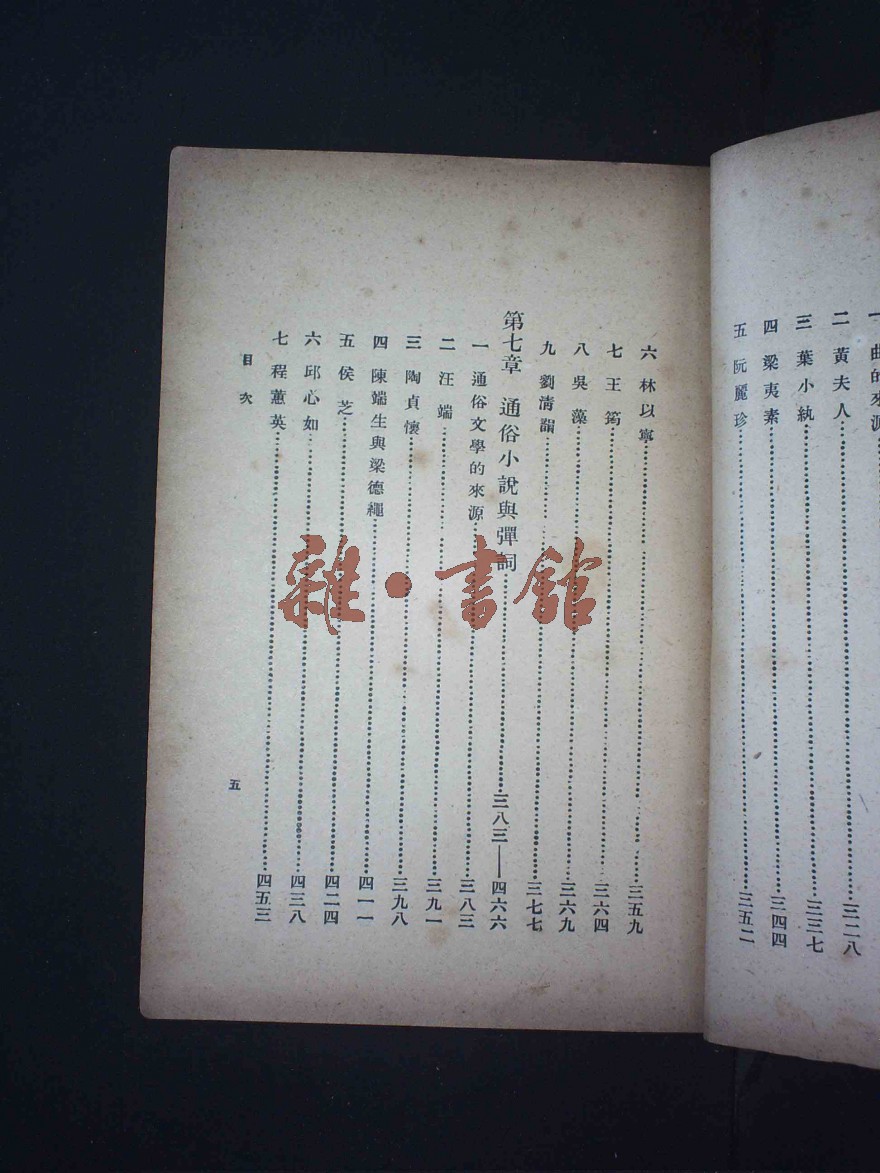 曲的來源
二 黃夫人……三二八
三 葉小紈……三三七
四 梁夷素……三四四
五 阮麗珍……三五二
六 林以寧……三五九
七 王筠……三六四
八 吳藻……三六九
九 劉清韻……三七七
第七章 通俗小說與彈詞……三八三——四六六
一 通俗文學的來源……三八三
二 汪端……三九一
三 陶貞懷……三九八
四 陳端生與梁德繩……四一一
五 侯芝……四二四
六 邱心如……四三八
七 程蕙英……四五三
目次
五
雜·書館